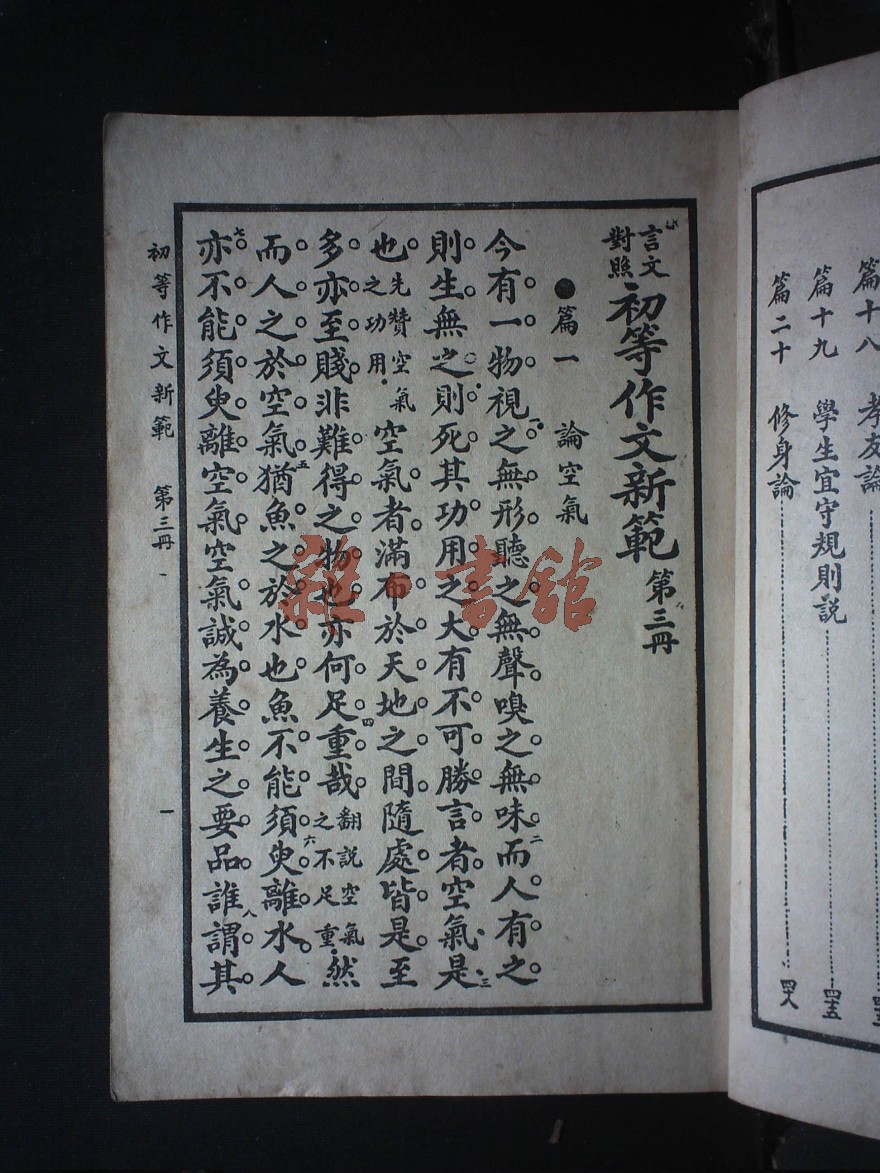 篇十八　孝友論
篇十九　學生宜守規則說　四十五
篇二十　修身論　四十八
言文對照 初等作文新範 第三冊
●篇一　論空氣
今有一物視之無形聽之無聲嗅之無味二而人有之
則生無之則死其功用之大有不可勝言者空氣是三
也先贊空氣之功用空氣者滿布於天地之間隨處皆是至
多亦至賤非難得之物也亦何足重哉四翻說空氣之不足重然
而人之於空氣五猶魚之於水也魚不能須臾六離水人
七亦不能須臾離空氣空氣誠為養生之要品誰八謂其
初等作文新範　第三冊　一
雜·書館